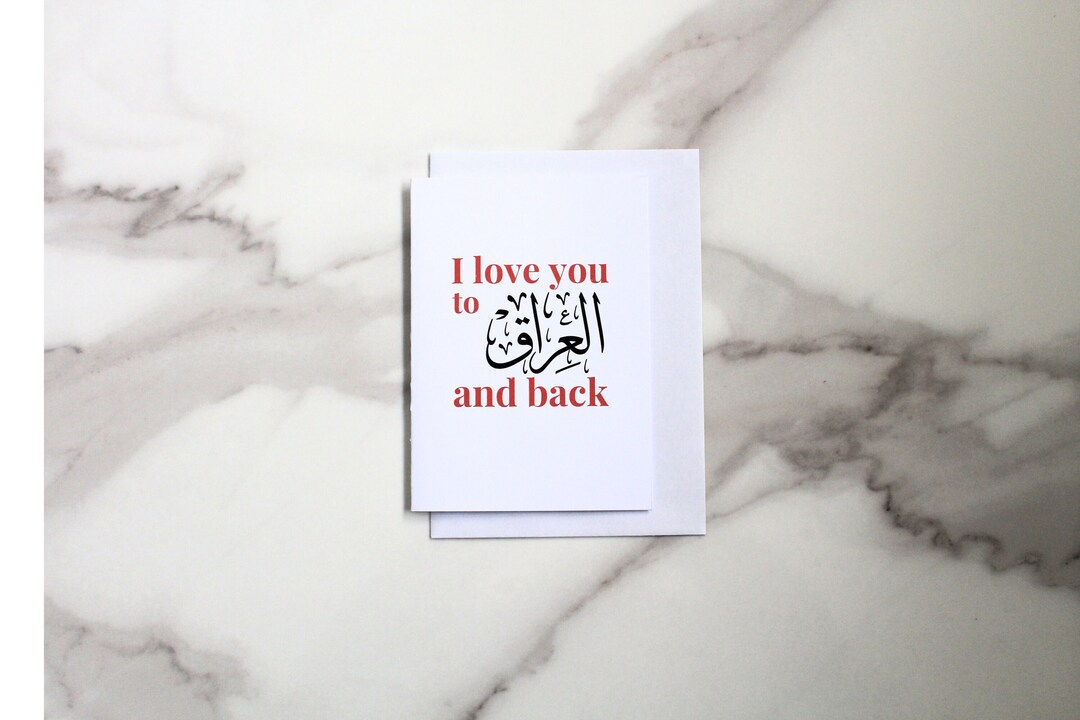 I love you
to العِراق
and back